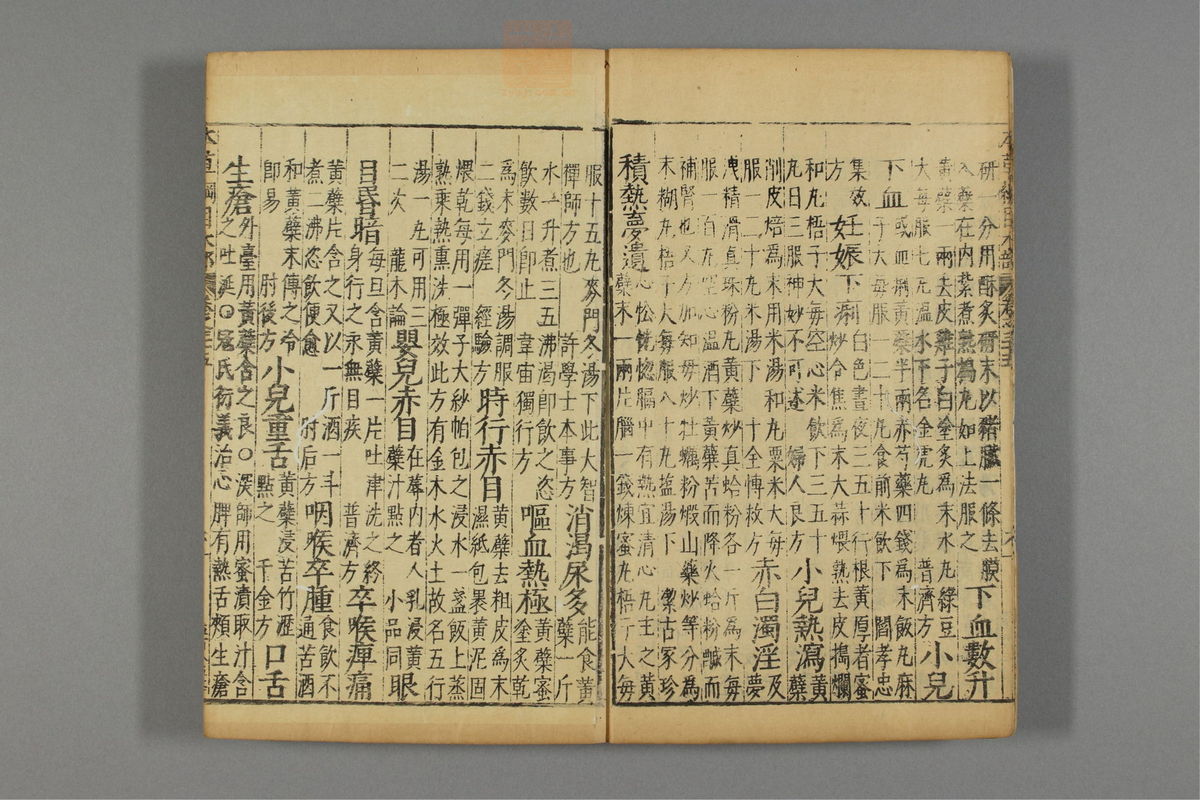 本草綱目木部 卷之三十五
研一分用酥炙研末以豬臟一條去膜
入藥在內紮煮熟搗丸如上法服之
下血數升
黃蘗一兩去皮雞子白塗炙為末水丸綠豆
大每服七丸溫水下名金虎丸 普濟方
小兒
下血
或血痢黃蘗半兩赤芍藥四錢為末飯丸麻
子大每服一二十丸食前米飲下 閻孝忠
集效
方
妊娠下痢
白色晝夜三五十行根黃厚者蜜
炒令焦為末大蒜煨熟去皮搗爛
和丸梧子大每空心米飲下三五十
丸日三服神妙不可述 婦人良方
小兒熱瀉
黃
蘗
削皮焙為末用米湯和丸粟米大每
服一二十丸米湯下 十全博救方
赤白濁淫
及
夢
洩精滑真珠粉丸黃蘗炒真蛤粉各一斤為末每
服一百丸空心溫酒下黃蘗苦而降火蛤粉鹹而
補腎也又方加知母炒牡蠣粉煅山藥炒等分為
末糊丸梧子大每服八十丸鹽湯下 潔古家珍
積熱夢遺
心忪恍惚膈中有熱宜清心丸主之黃
蘗末一兩片腦一錢煉蜜丸梧子大每
服十五丸麥門冬湯下此大智
禪師方也 許學士本事方
消渴尿多
能食黃
蘗一斤
水一升煮三五沸渴即飲之恣
飲數日即止 韋宙獨行方
嘔血熱極
黃蘗蜜
塗炙乾
為末麥門冬湯調服
二錢立瘥 經驗方
時行赤目
黃蘗去粗皮為末
濕紙包裹黃泥固
煨乾每用一彈子大紗帕包之浸水一盞飯上蒸
熟乘熱熏洗極效此方有金木水火土故名五行
湯一丸可用三
二次 龍木論
嬰兒赤目
在蓐內者人乳浸黃
蘗汁點之 小品同
眼
目昏暗
每旦含黃蘗一片吐津洗之終
身行之永無目疾 普濟方
卒喉痺痛
黃蘗片含之又以一斤酒一斗
煮二沸恣飲便愈 肘后方
咽喉卒腫
食飲不
通苦酒
和黃蘗末傅之冷
即易 肘後方
小兒重舌
黃蘗浸苦竹瀝
點之 千金方
口舌
生瘡
外臺用黃蘗含之良〇深師用蜜漬取汁含
之吐涎〇寇氏衍義治心脾有熱舌頰生瘡
本草綱目木部 卷三十五